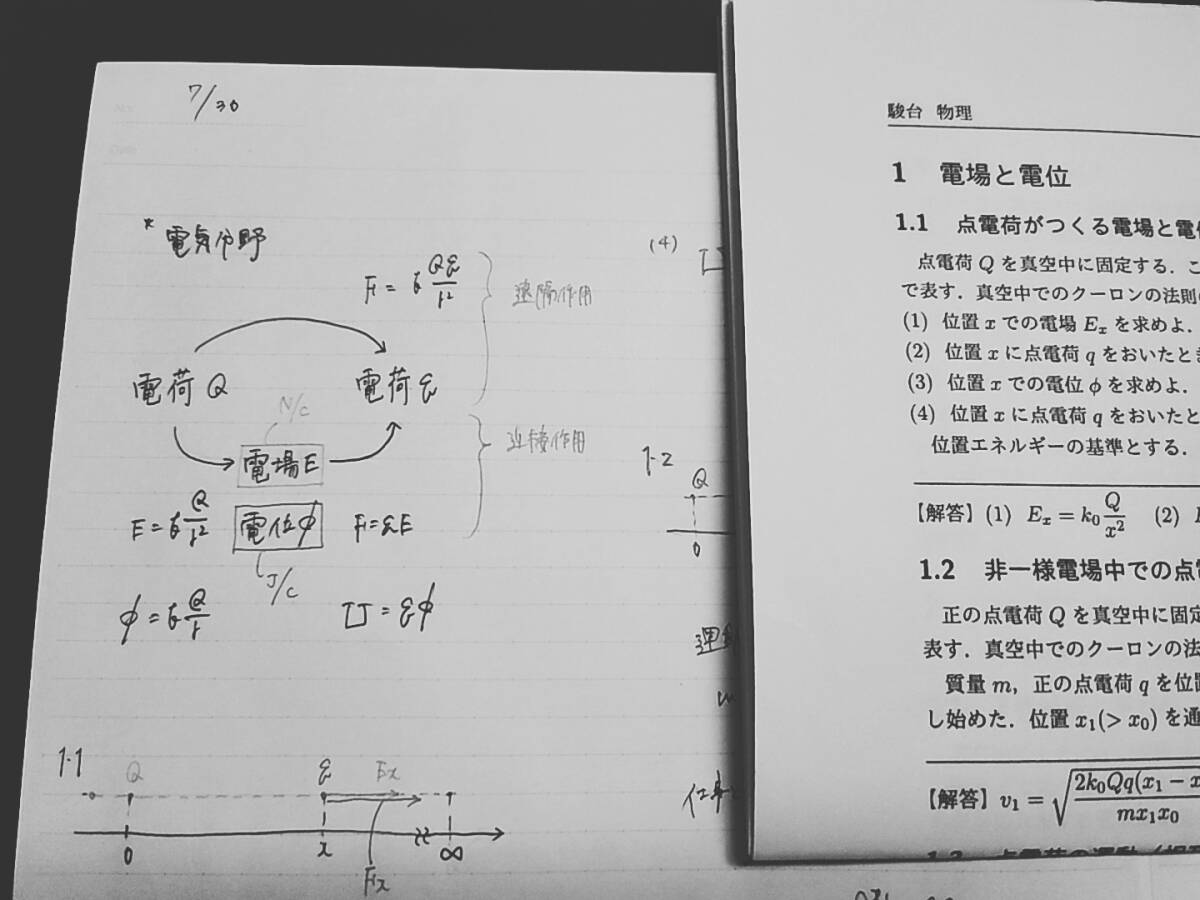 7/30
*電気分野
F = k Qq/r²
遠隔作用
電荷Q
電荷q
N/C
電場E
近接作用
E = k Q/r²
電位φ
F = qE
J/C
φ = k Q/r
U = qφ
1-1
Q
q
Ex
0
x
∞
Fx
(4)
U
1-2
Q
0
駿台 物理
1 電場と電位
1.1 点電荷がつくる電場と電
点電荷 Q を真空中に固定する．こ
で表す．真空中でのクーロンの法則の
(1) 位置 x での電場 Ex を求めよ．
(2) 位置 x に点電荷 q をおいたとき
(3) 位置 x での電位 φ を求めよ．
(4) 位置 x に点電荷 q をおいたと
位置エネルギーの基準とする．
【解答】(1) Ex = k0 Q/x² (2)
1.2 非一様電場中での点
正の点電荷 Q を真空中に固定
表す．真空中でのクーロンの法
質量 m，正の点電荷 q を位置
し始めた．位置 x1(> x0) を通
【解答】v1 = √(2k0Qq(x1 − x / mx1x0